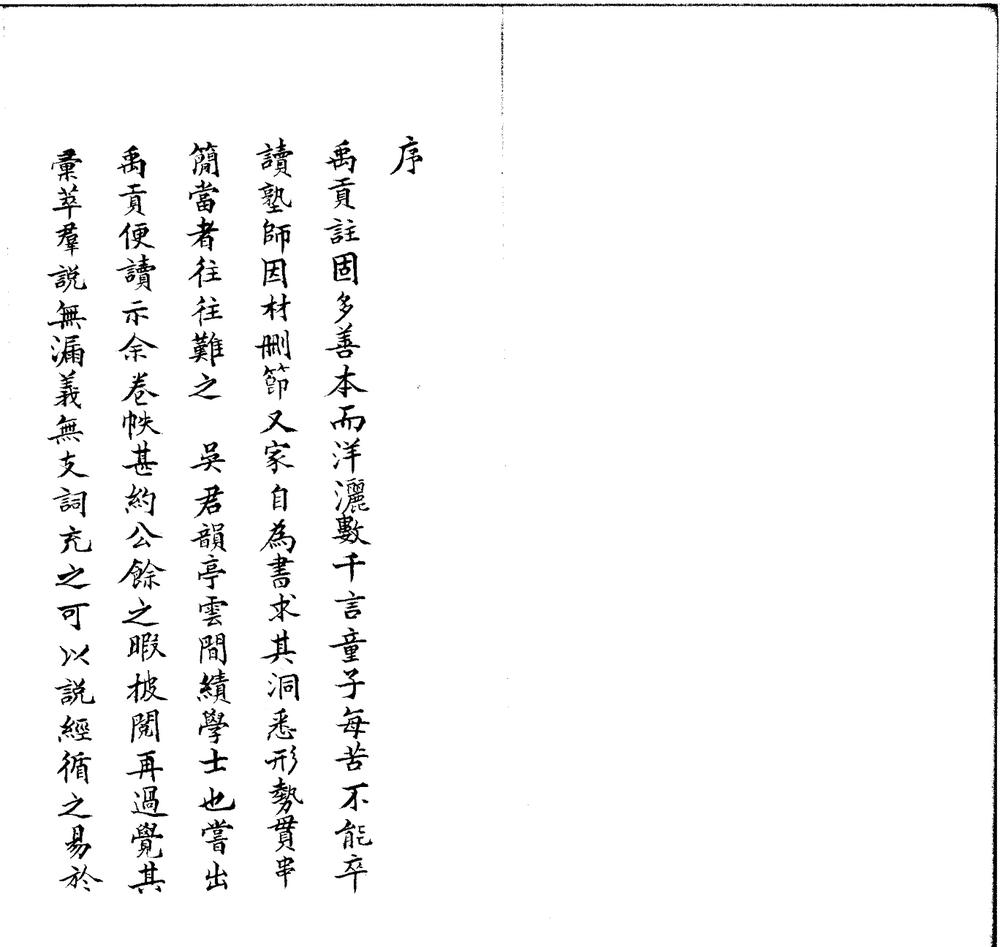 序
禹貢註固多善本而洋灑數千言童子每苦不能卒
讀塾師因材刪節又家自為書求其洞悉形勢貫串
簡當者往往難之　吳君韻亭雲間績學士也嘗出
禹貢便讀示余卷帙甚約公餘之暇披閱再過覺其
彙萃羣說無漏義無支詞充之可以説經循之易於